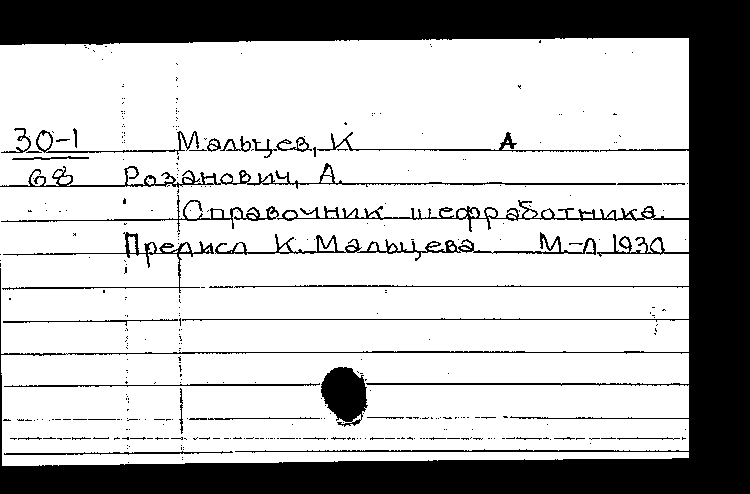 30-1 Мальцев, К А
68 Розанович, А.
Справочник шефработника.
Предисл К. Мальцева М.-Л. 1930